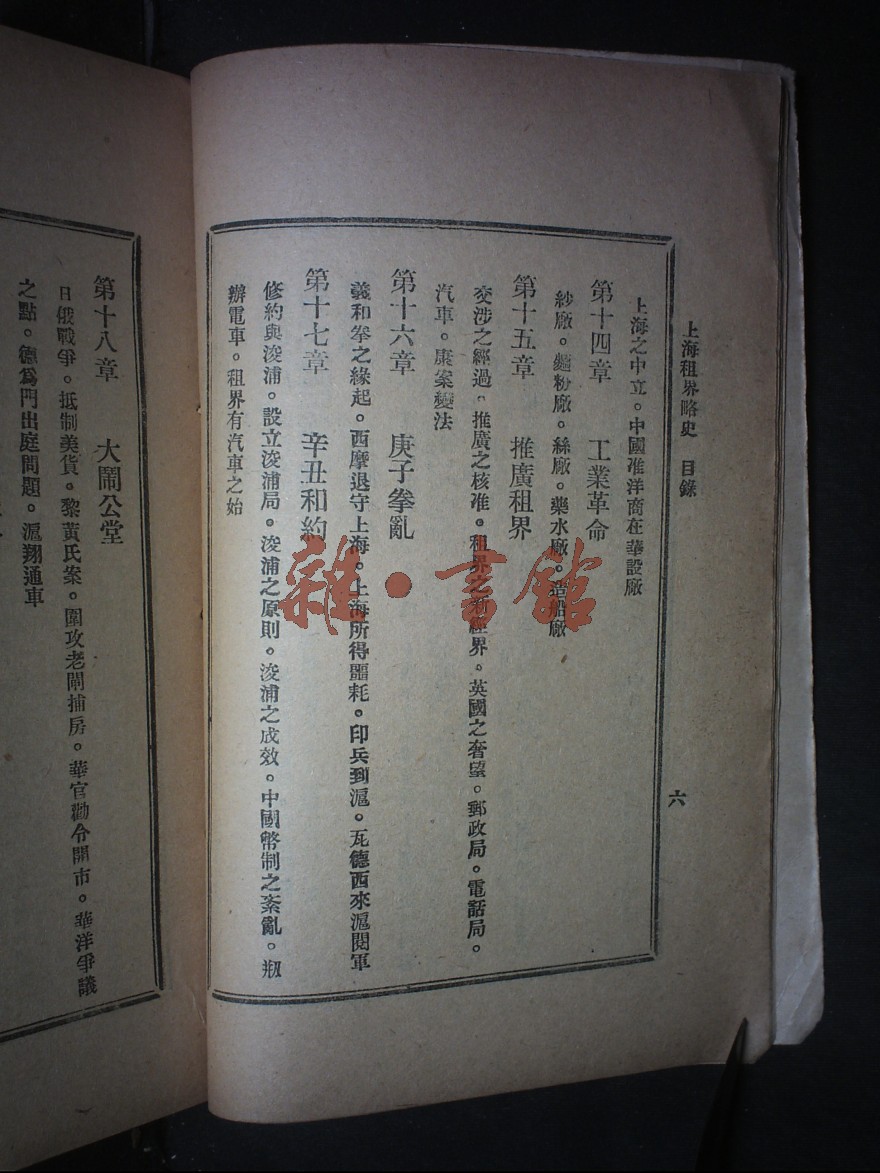 上海租界略史　目錄
六
上海之中立。中國准洋商在華設廠
第十四章　工業革命
紗廠。麵粉廠。絲廠。藥水廠。造船廠
第十五章　推廣租界
交涉之經過。推廣之核准。租界之新經界。英國之奢望。郵政局。電話局。
汽車。康案變法
第十六章　庚子拳亂
義和拳之緣起。西摩退守上海。上海所得噩耗。印兵到滬。瓦德西來滬閱軍
第十七章　辛丑和約
修約與浚浦。設立浚浦局。浚浦之原則。浚浦之成效。中國幣制之紊亂。剏
辦電車。租界有汽車之始
第十八章　大鬧公堂
日俄戰爭。抵制美貨。黎黃氏案。圍攻老閘捕房。華官勸令開市。華洋爭議
之點。德爲門出庭問題。滬翔通車
雜·書館